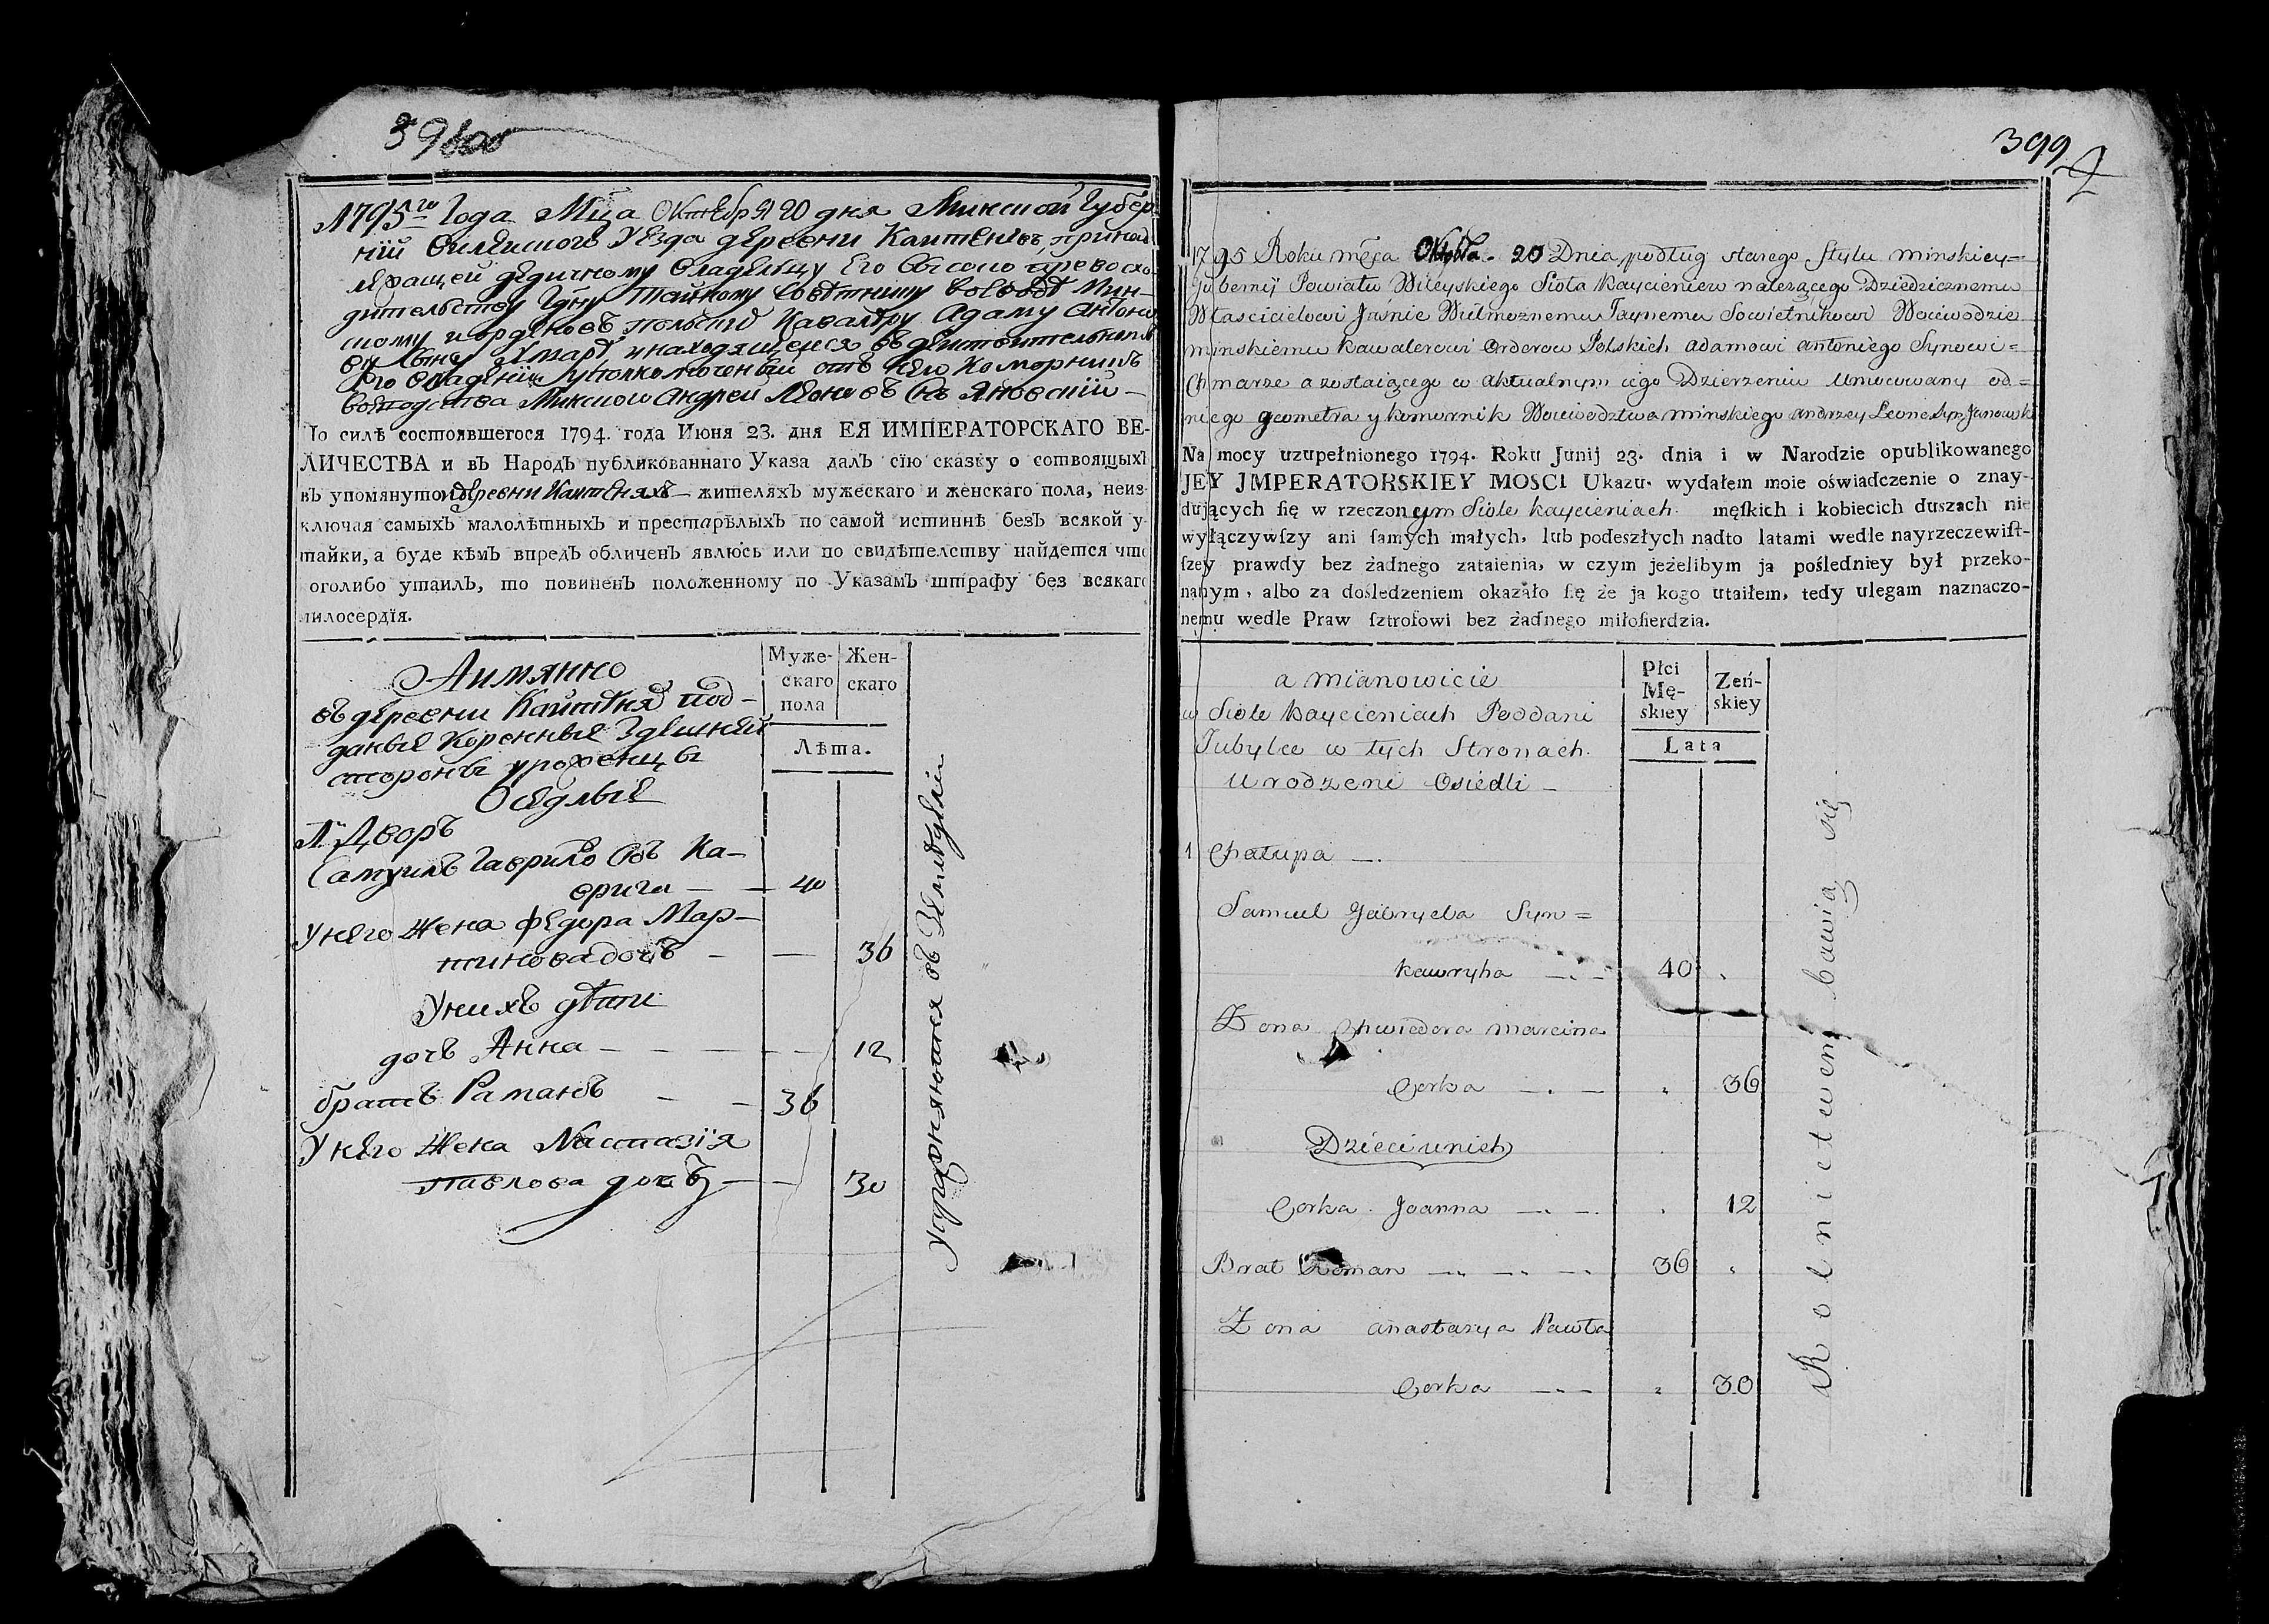 1795го Года Мца Октября 20 дня Минской Губер
ніи Вилейского Уезда деревни Каитеневъ, принад
лежащей дедичному Владельцу Его Высоко превосхо
дительству Гдну Тайному Советнику воеводе Мин-
скому и орденовъ польскихъ Кавалеру Адаму Антоно
ву Сыну Хмаре инаходящейся въ действительномъ
Его владеніи Уполномоченный отъ Него Коморникъ
воеводства Минского Андрей Леоновъ Снъ Яновскій —
По силѣ состоявшегося 1794. года Июня 23. дня ЕЯ ИМПЕРАТОРСКАГО ВЕ-
ЛИЧЕСТВА и въ Народъ публикованнаго Указа далъ сїю сказку о сотвоящыхъ
въ упомянутой деревни Каитеняхъ — жителяхъ мужескаго и женскаго пола, неиз-
ключая самыхъ малолѣтныхъ и престарѣлыхъ по самой истиннѣ безъ всякой у-
тайки, а буде кѣмъ впредъ обличенъ явлюсь или по свидѣтелству найдется что
оголибо утаилъ, то повиненъ положенному по Указамъ штрафу без всякаго
милосердїя.
Муже-
скаго
пола
Жен-
скаго
Лѣта.
Аимянно
въ деревни Каитеня под-
даные коренные Здешней
стороны уроженцы
Оседлые
1й Дворъ
Самуилъ Гаврило Снъ Ка-
врига — — 40
Унего жена федора Мар-
тинова дочъ — — 36
Унихъ дети
дочъ Анна — — — — — 12
братъ Раманъ — — 36
Унего жена Настазія
Павлова дочъ — — 30
Упражняются въ Земледелии
399
1795 Roku męca Oktobra. 20 Dnia podług starego Stylu minskiey=
Guberniÿ Powiatu Wileyskiego Sioła Kaycieniew nalezącego Dziedzicznemu
Włascicielowi Jaśnie Wielmoznemu Taynemu Sowietnikowi Woiewodzie
minskiemu kawalerowi Orderow Polskich adamowi antoniego Synowi=
Chmarze a zostaiącego w aktualnym iego Dzierzeniu Umocowany od=
niego geometra y komornik Woiewodztwa minskiego andrzey Leona Syn Janowski
Na mocy uzupełnionego 1794. Roku Junij 23. dnia i w Narodzie opublikowanego
JEY JMPERATORSKIEY MOSCI Ukazu. wydałem moie oświadczenie o znay-
dujących ſię w rzeczonym Siole kaycieniach. męſkich i kobiecich duszach nie
wyłączywſzy ani ſamych małych, lub podeszłych nadto latami wedle nayrzeczewiſt-
ſzey prawdy bez żadnego zataienia, w czym jeżelibym ja pośledniey był przeko-
nanym, albo za dośledzeniem okazało ſię że ja kogo utaiłem, tedy ulegam naznaczo-
nemu wedle Praw ſztrofowi bez żadnego miłoſierdzia.
Płci
Mę-
skiey
Zeń-
skiey
Lata
a mianowicie
w Siole kaycieniach Poddani
Tubylce w tych Stronach.
urodzeni Osiedli —
1 Chałupa —.
Samuel Gabryela Syn =
kawryha — . — 40
Zona Chwiedora marcina
Corka — . — 36
Dzieci unich
Corka Joanna — .. — . 12
Brat Roman — .. — .. — . 36
Zona anastazya Pawła
Corka — .. — 30
Rolnictwem bawią się